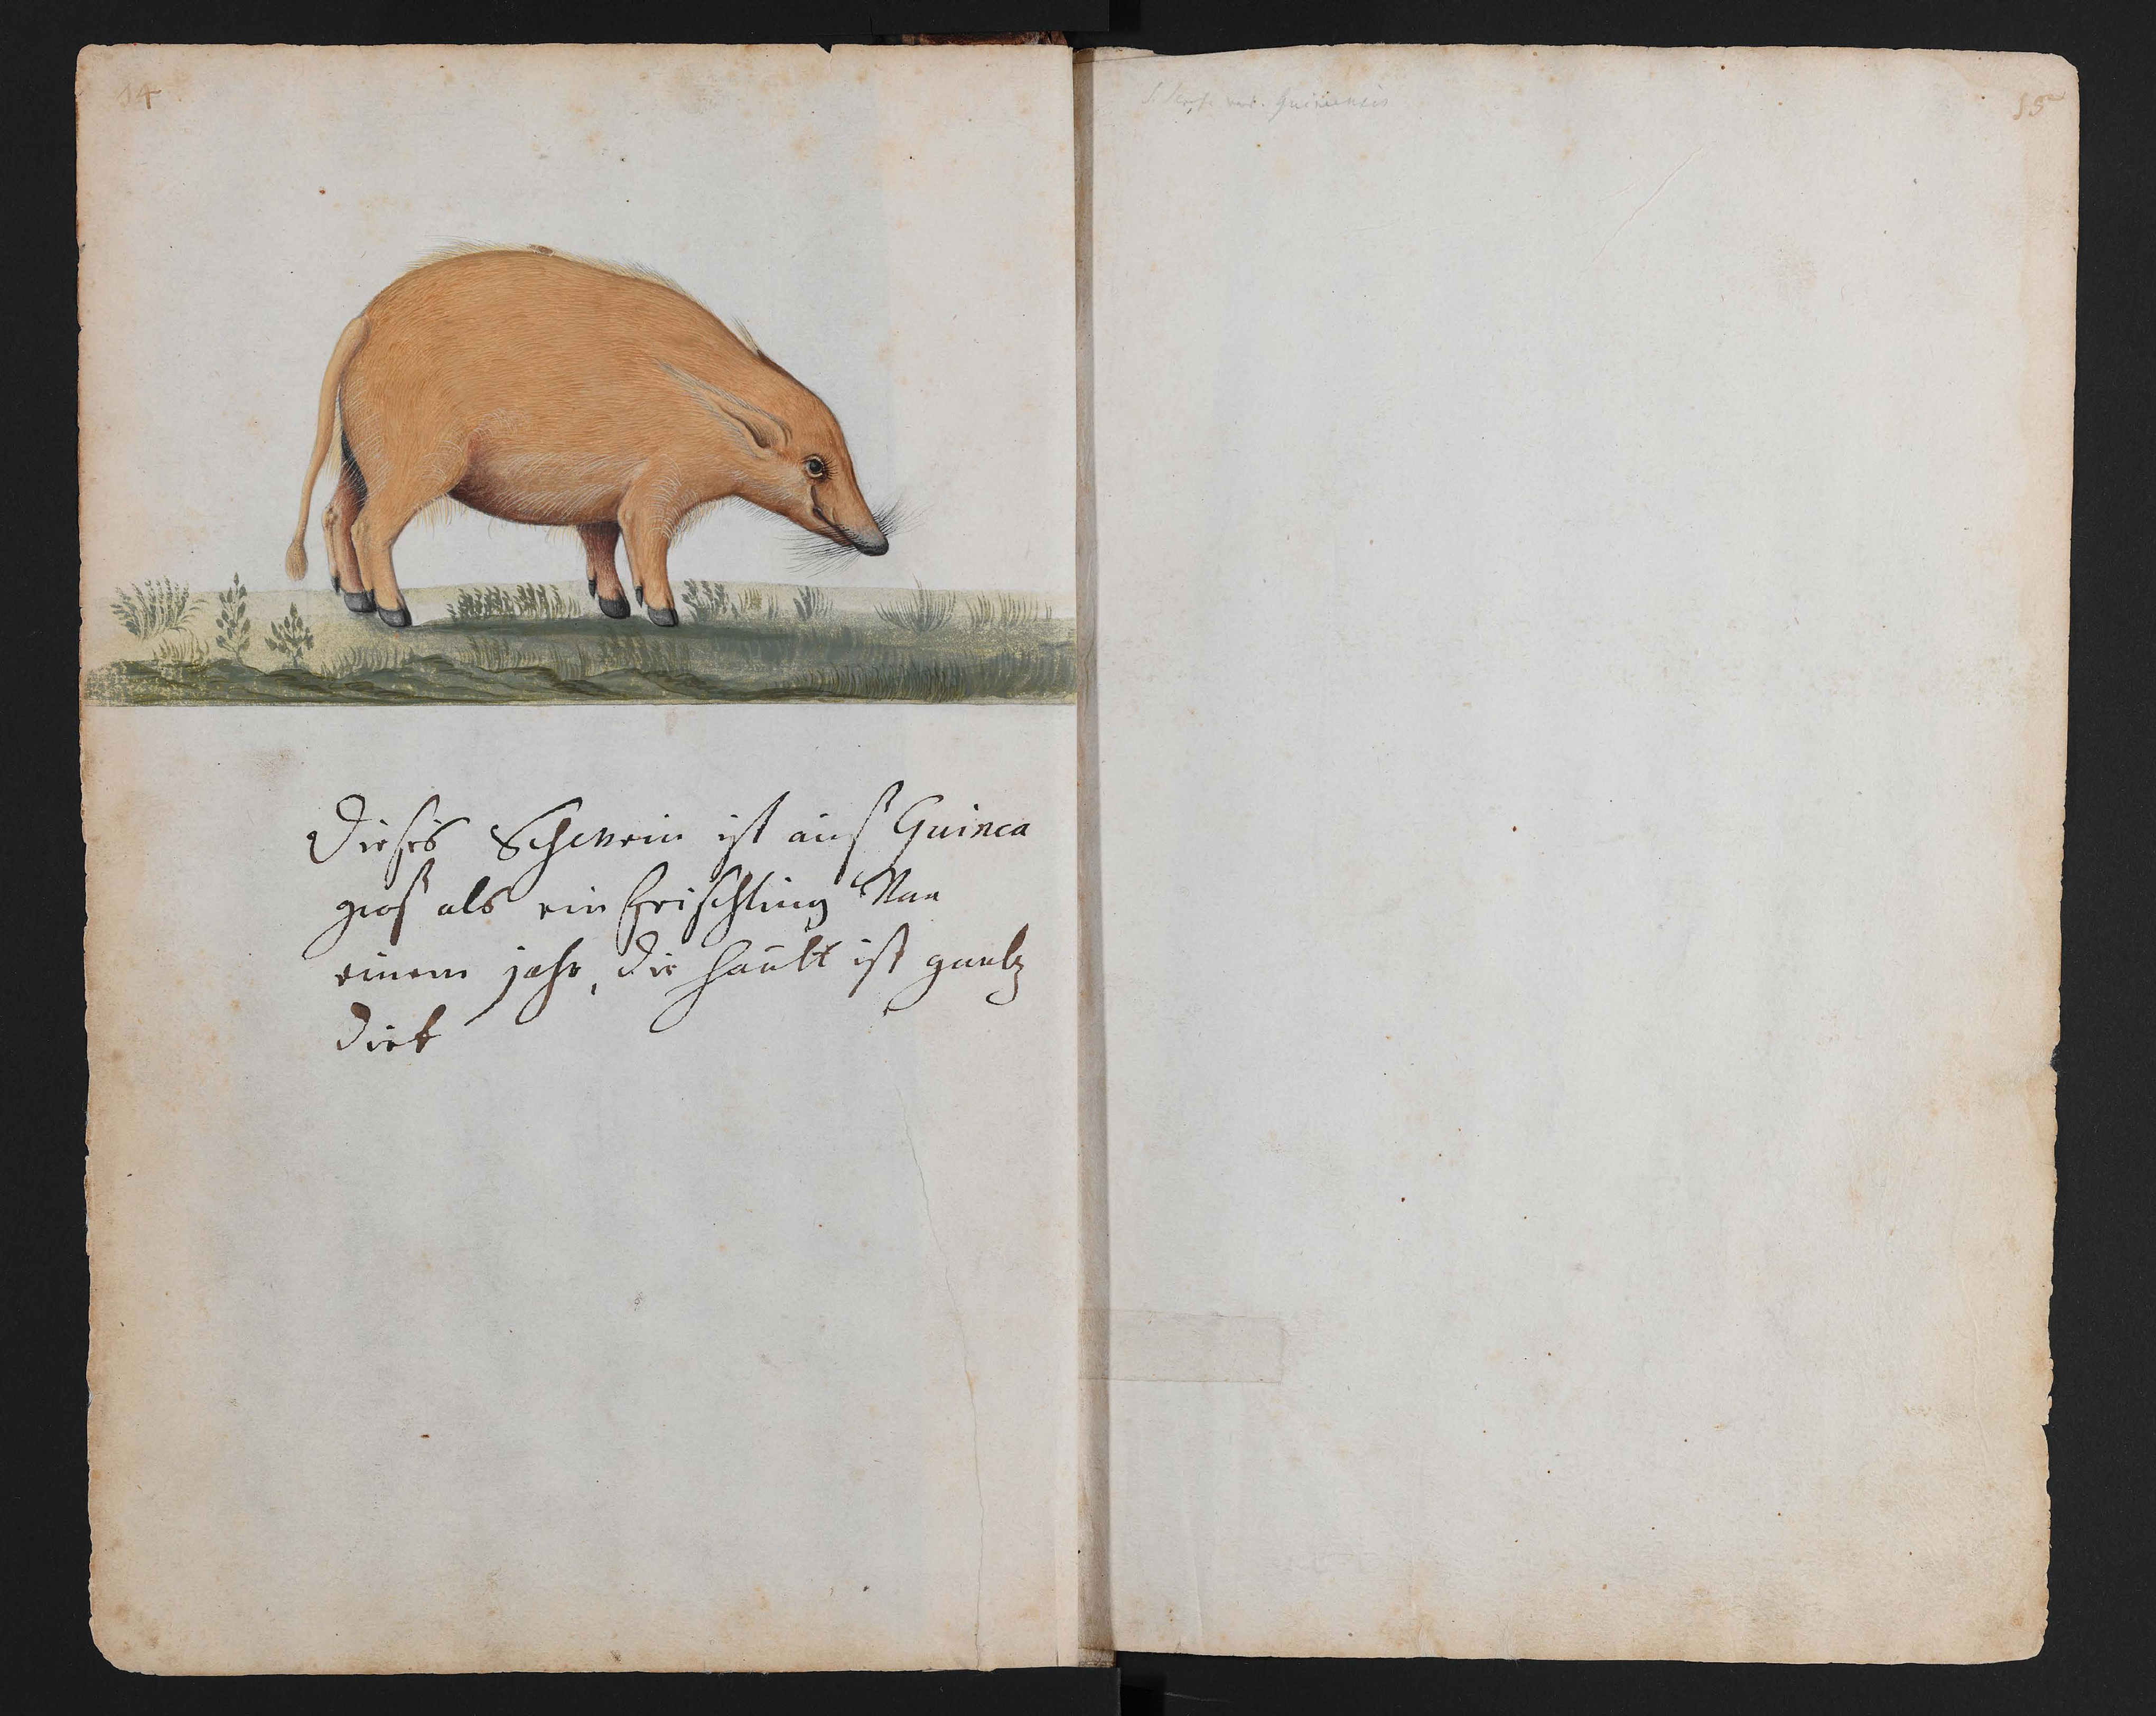 14
Dieses Schwein ist auß Guinea
groß als ein frischling Van
einem jahr, die hautt ist gantz
dick
S. Scrofa var. Guineensis
15